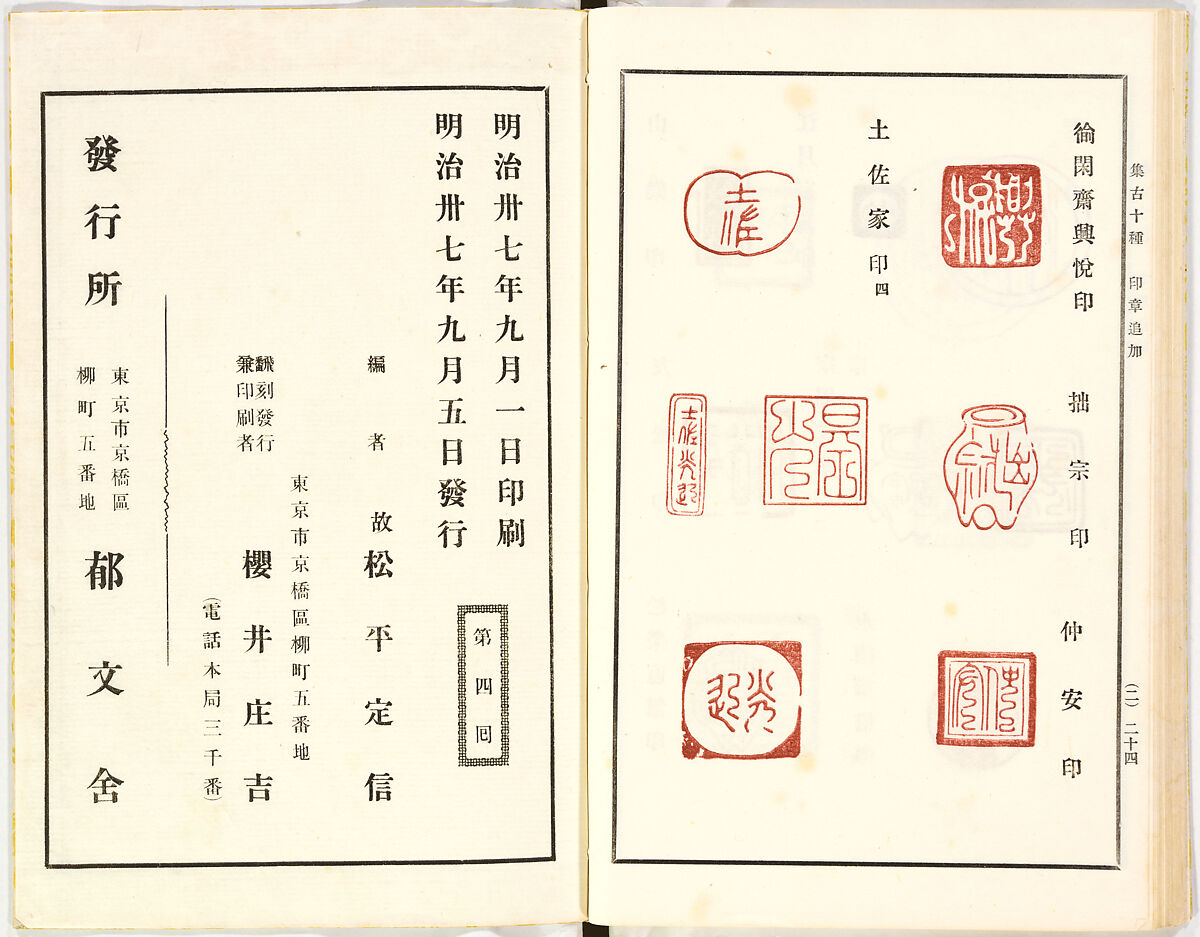 集古十種　印章追加
(二)二十四
閑齋興悅印
拙宗印
仲安印
土佐家印四
明治卅七年九月一日印刷
明治卅七年九月五日發行
第四回
編者　故松平定信
東京市京橋區柳町五番地
翻刻發行
兼印刷者
櫻井庄吉
(電話本局三千番)
發行所
東京市京橋區
柳町五番地
郁文舍